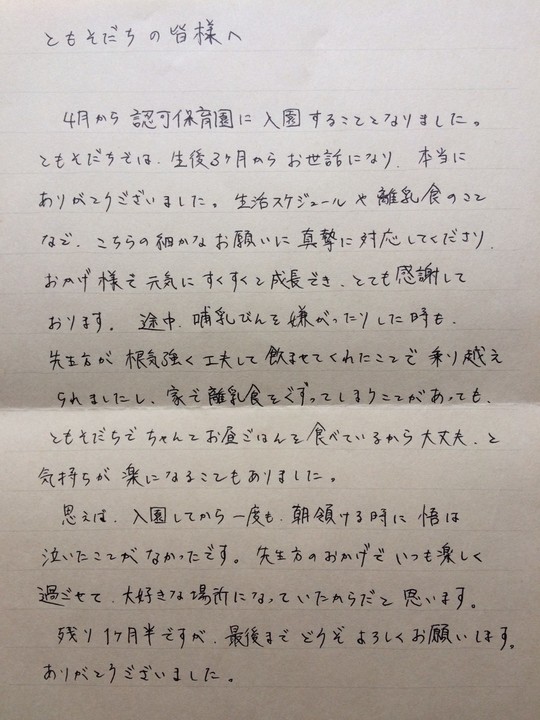 ともそだちの皆様へ
4月から認可保育園に入園することとなりました。
ともそだちでは、生後3ヶ月からお世話になり、本当に
ありがとうございました。生活スケジュールや離乳食のこと
など、こちらの細かなお願いに真摯に対応してくださり、
おかげ様で元気にすくすくと成長でき、とても感謝して
おります。途中、哺乳びんを嫌がったりした時も、
先生方が根気強く工夫して飲ませてくれたことで乗り越え
られましたし、家で離乳食をぐずってしまうことがあっても、
ともそだちでちゃんとお昼ごはんを食べているから大丈夫、と
気持ちが楽になることもありました。
思えば、入園してから一度も、朝預ける時に悟は
泣いたことがなかったです。先生方のおかげでいつも楽しく
過ごせて、大好きな場所になっていたからだと思います。
残り1ヶ月半ですが、最後までどうぞよろしくお願いします。
ありがとうございました。